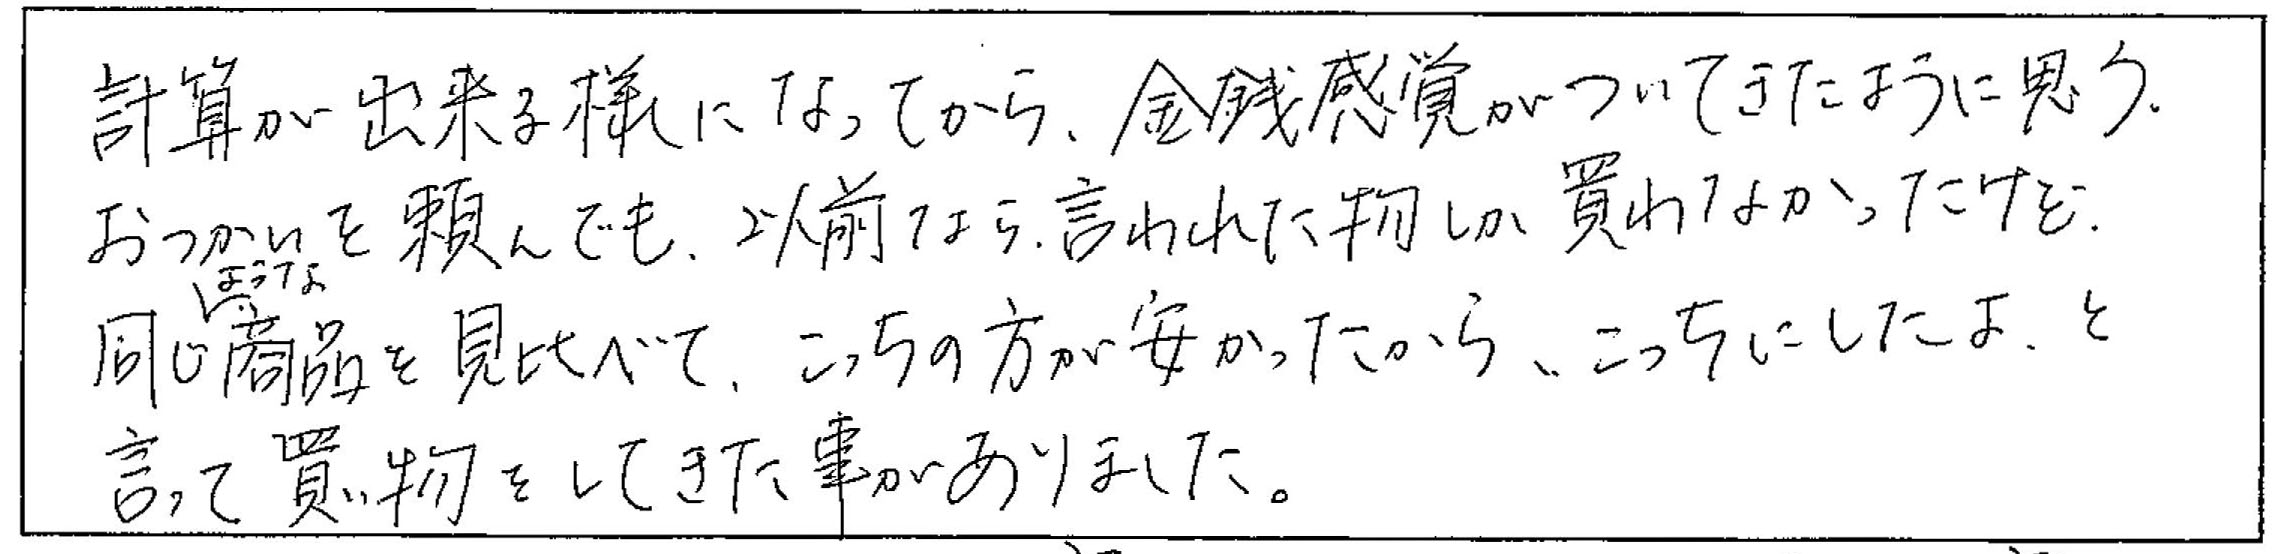 計算が出来る様になってから、金銭感覚がついてきたように思う.
おつかいを頼んでも、以前なら、言われた物しか買わなかったけど、
同じような商品を見比べて、こっちの方が安かったから、こっちにしたよ、と
言って買い物をしてきた事がありました。